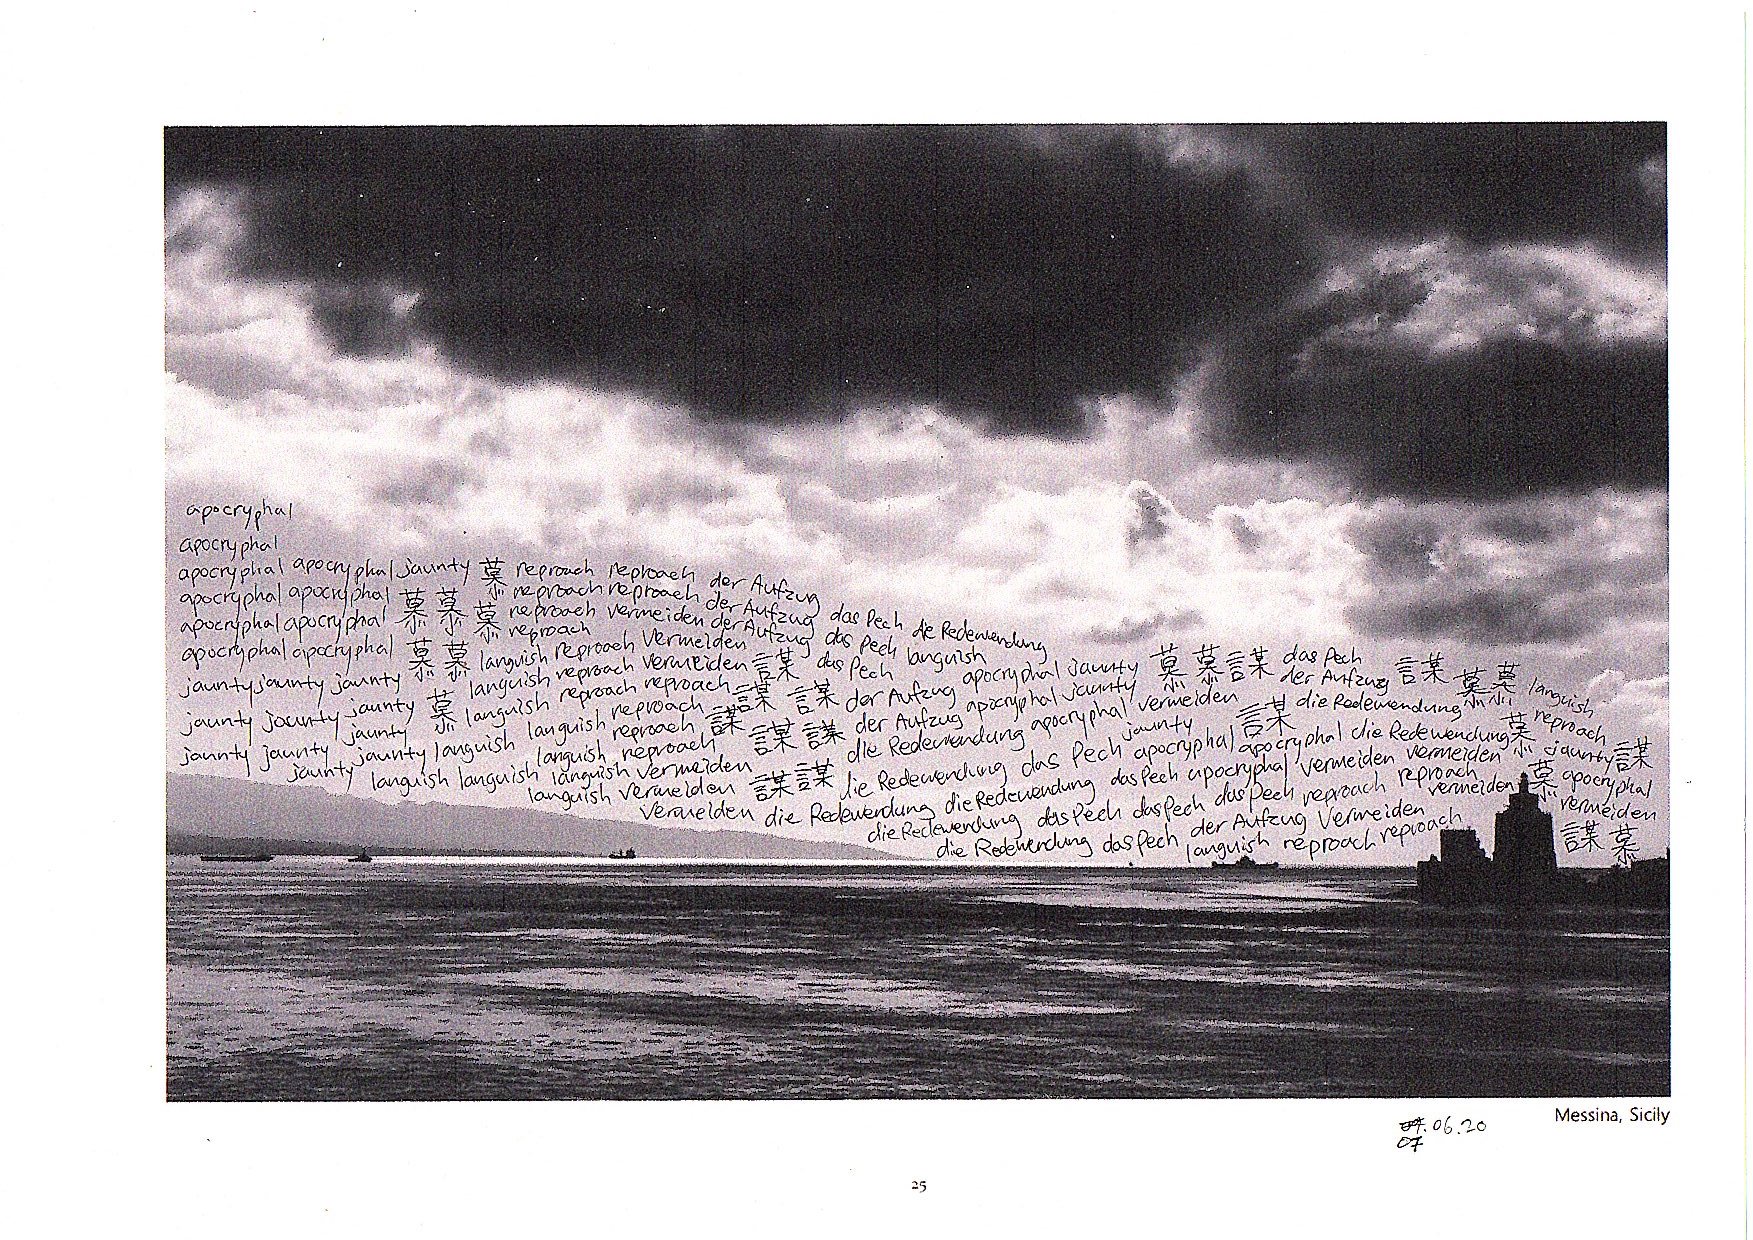 apocryphal
apocryphal
apocryphal apocryphal jaunty 慕 reproach reproach der Aufzug
apocryphal apocryphal 慕 慕 reproach reproach der Aufzug das Pech die Redewendung
apocryphal apocryphal 慕 reproach vermeiden der Aufzug das Pech languish
apocryphal apocryphal 慕 慕 languish reproach reproach vermeiden 謀 das Pech apocryphal jaunty 慕 慕 謀 das Pech
jaunty jaunty jaunty languish reproach vermeiden 謀 謀 der Aufzug apocryphal jaunty der Aufzug 謀 慕 慕 languish
jaunty jaunty jaunty 慕 languish reproach reproach 謀 der Aufzug apocryphal vermeiden die Redewendung reproach
jaunty languish reproach 謀 謀 die Redewendung jaunty 謀 慕 謀
jaunty jaunty jaunty languish languish reproach die Redewendung das Pech apocryphal apocryphal die Redewendung jaunty
jaunty languish languish languish vermeiden 謀 謀 die Redewendung das Pech apocryphal vermeiden vermeiden 慕 apocryphal
languish vermeiden die Redewendung die Redewendung das Pech das Pech das Pech reproach reproach vermeiden vermeiden
vermeiden die Redewendung das Pech der Aufzug vermeiden 謀 慕
die Redewendung das Pech languish reproach reproach
Messina, Sicily
.06.20
07
25